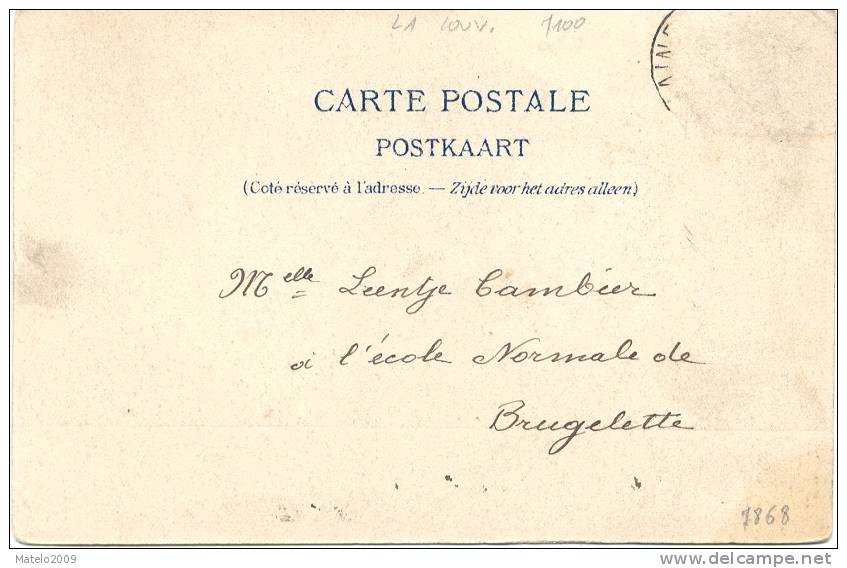 LA LOUV. 7100
CARTE POSTALE
POSTKAART
(Coté réservé à l'adresse. — Zijde voor het adres alleen)
Melle Leentje Cambier
à l'école Normale de
Brugelette
7868
Matelo2009
www.delcampe.net